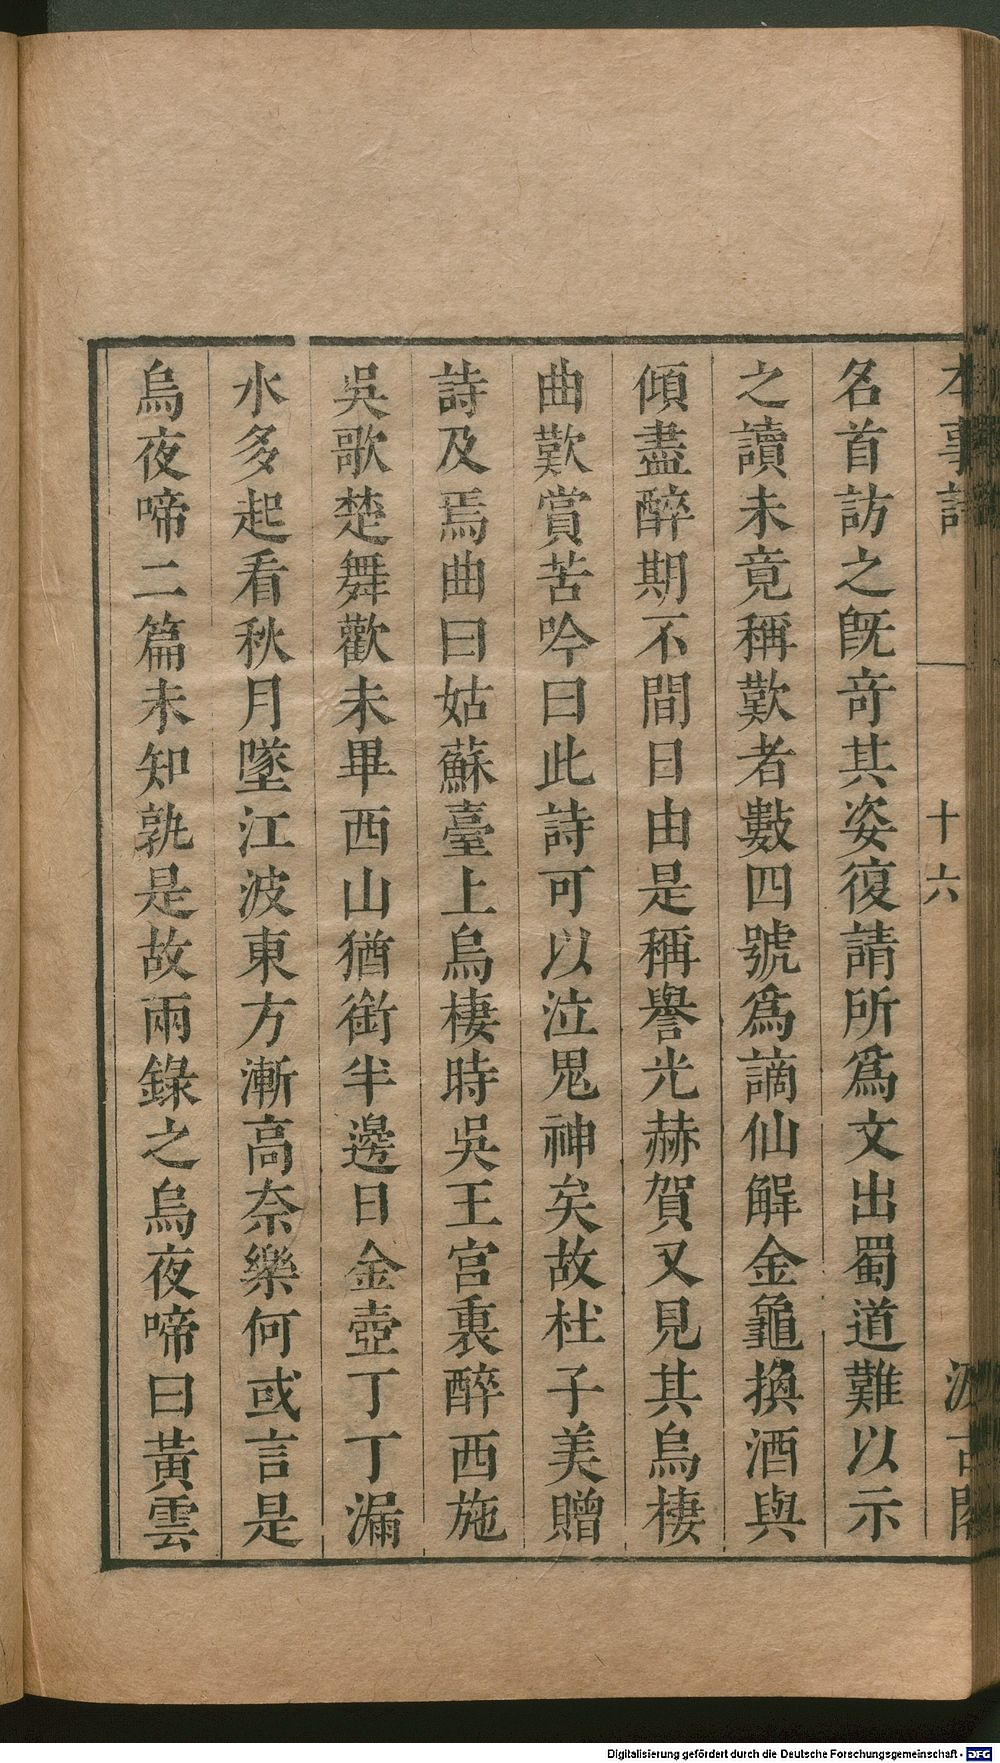 本事詩 十六 汲古閣
名首訪之旣奇其姿復請所爲文出蜀道難以示
之讀未竟稱歎者數四號爲謫仙解金龜換酒與
傾盡醉期不間日由是稱譽光赫賀又見其烏棲
曲歎賞苦吟曰此詩可以泣鬼神矣故杜子美贈
詩及焉曲曰姑蘇臺上烏棲時吳王宮裏醉西施
吳歌楚舞歡未畢西山猶銜半邊日金壺丁丁漏
水多起看秋月墜江波東方漸高奈樂何或言是
烏夜啼二篇未知孰是故兩錄之烏夜啼曰黃雲
Digitalisierung gefördert durch die Deutsche Forschungsgemeinschaft - DFG